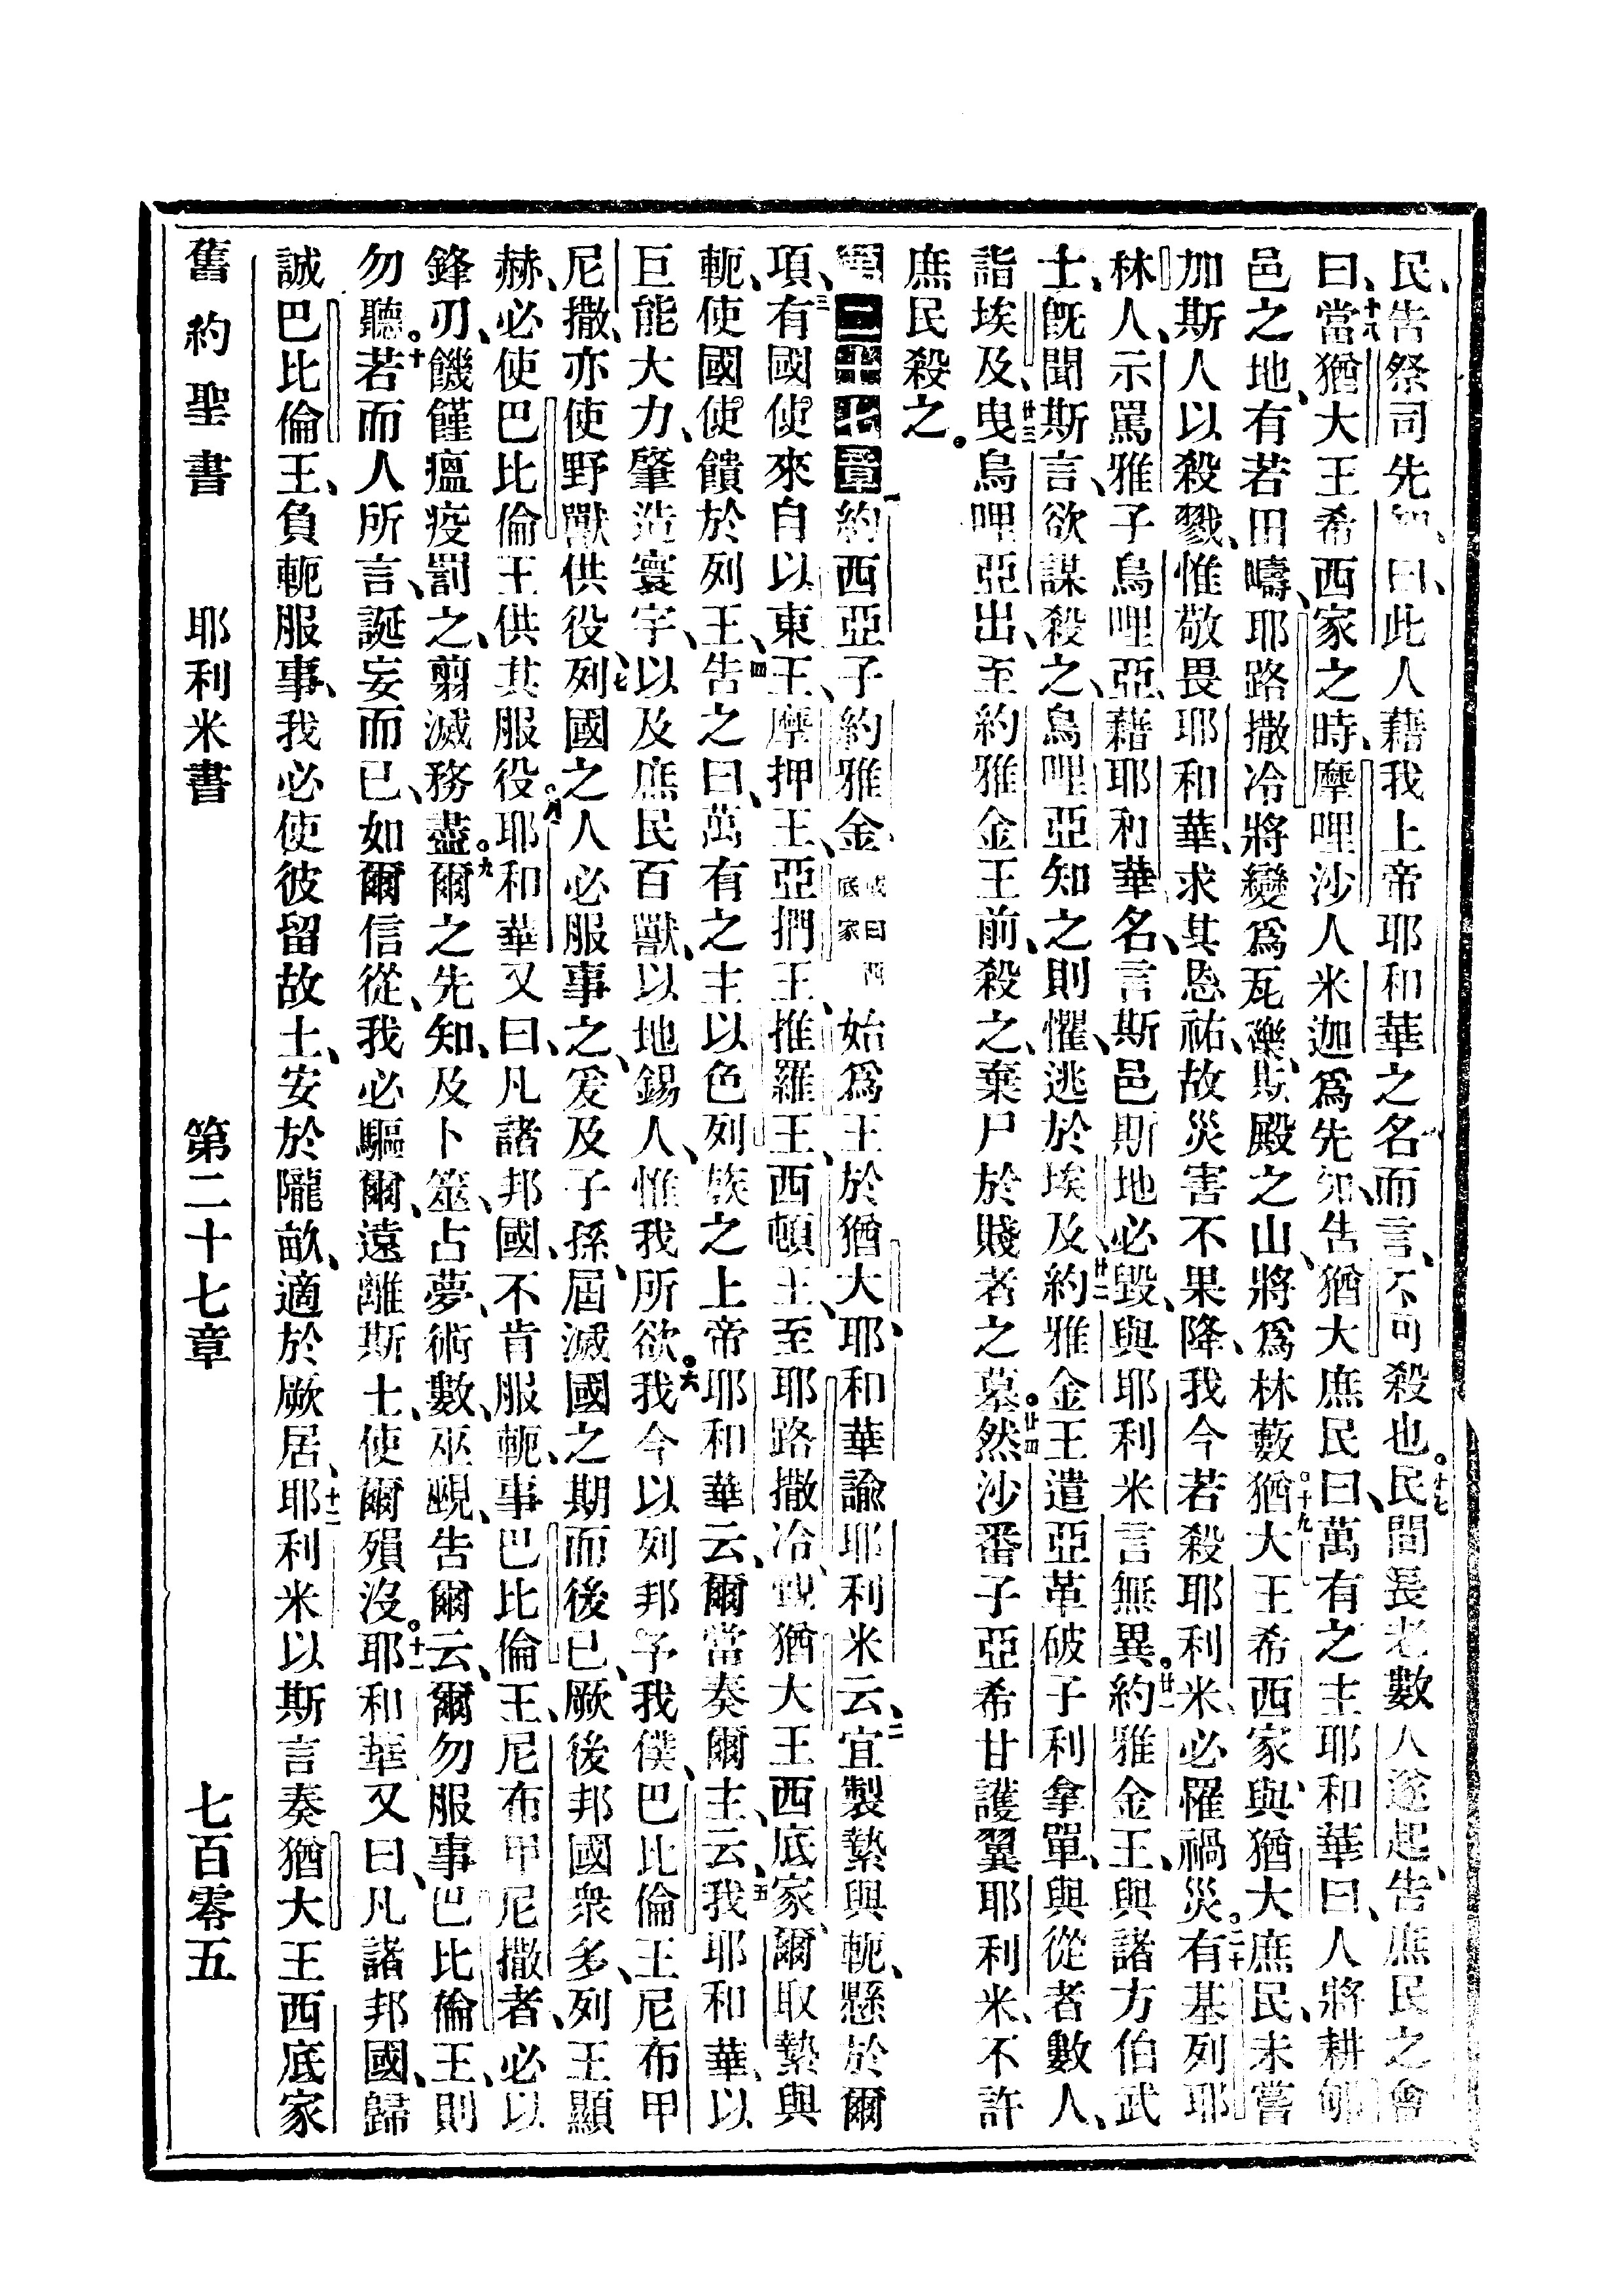 民、告祭司先知、曰、此人藉我上帝耶和華之名而言、不可殺也。十七民間長老數人遂起、告庶民之會
曰、十八當猶大王希西家之時、摩哩沙人米迦爲先知、告猶大庶民曰、萬有之主耶和華曰、人將耕郇
邑之地、有若田疇、耶路撒冷將變爲瓦礫、斯殿之山、將爲林藪。十九猶大王希西家、與猶大庶民、未嘗
加斯人以殺戮、惟敬畏耶和華、求其恩祐、故災害不果降、我今若殺耶利米、必罹禍災。二十有基列耶
林人、示罵雅子烏哩亞、藉耶和華名、言斯邑斯地必毀、與耶利米言無異。廿一約雅金王、與諸方伯武
士、旣聞斯言、欲謀殺之、烏哩亞知之則懼、逃於埃及、廿二約雅金王遣亞革破子利拿單、與從者數人、
詣埃及、廿三曳烏哩亞出、至約雅金王前、殺之、棄尸於賤者之墓。廿四然沙番子亞希甘護翼耶利米、不許
庶民殺之。
第二十七章 一約西亞子約雅金、或曰西底家始爲王於猶大、耶和華諭耶利米云、二宜製縶與軛、懸於爾
項、三有國使來自以東王、摩押王、亞捫王、推羅王、西頓王、至耶路撒冷、覲猶大王西底家、爾取縶與
軛、使國使饋於列王、四告之曰、萬有之主以色列族之上帝耶和華云、爾當奏爾主、云、五我耶和華、以
巨能大力、肇造寰宇、以及庶民百獸、以地錫人、惟我所欲。六我今以列邦予我僕、巴比倫王尼布甲
尼撒、亦使野獸供役、七列國之人必服事之、爰及子孫、屆滅國之期而後已、厥後邦國衆多、列王顯
赫、必使巴比倫王供其服役。八耶和華又曰、凡諸邦國、不肯服軛、事巴比倫王、尼布甲尼撒者、必以
鋒刃、饑饉瘟疫罰之、翦滅務盡。九爾之先知、及卜筮、占夢、術數、巫覡、告爾云、爾勿服事、巴比倫王、則
勿聽。十若而人所言、誕妄而已、如爾信從、我必驅爾、遠離斯土、使爾殞沒。十一耶和華又曰、凡諸邦國、歸
誠巴比倫王、負軛服事、我必使彼留故土、安於隴畝、適於厥居、十二耶利米以斯言奏猶大王西底家
舊約聖書 耶利米書 第二十七章 七百零五